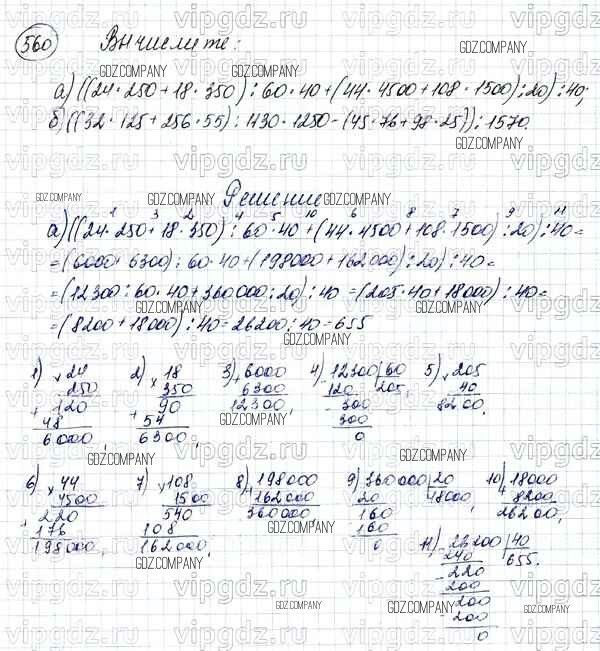 560 Вычислите:
а) ((24·250+18·350):60·40+(44·4500+108·1500):20):40;
б) ((32·125+256·55):430·1250-(45·76+98·25)):1570.
Решение
а) ((24·250+18·350):60·40+(44·4500+108·1500):20):40=
=(6000+6300):60·40+(198000+162000):20):40=
=(12300:60·40+360000:20):40=(205·40+18000):40=
=(8200+18000):40=26200:40=655
1) ×24 2) ×18 3) +6000 4) -12300|60 5) ×205
250 350 6300 120 205, 40
+120 +90 12300, -300 8200,
48 54 300
6000, 6300, 0
6) ×44 7) ×108 8) +198000 9) -360000|20 10) +18000
4500 1500 162000 20 18000, 8200
+220 +540 360000 -160 262000,
176 108 160
198000, 162000, 0
11) -26200|40
240 655.
-220
200
-200
200
0
vipgdz.com
GDZ.COMPANY